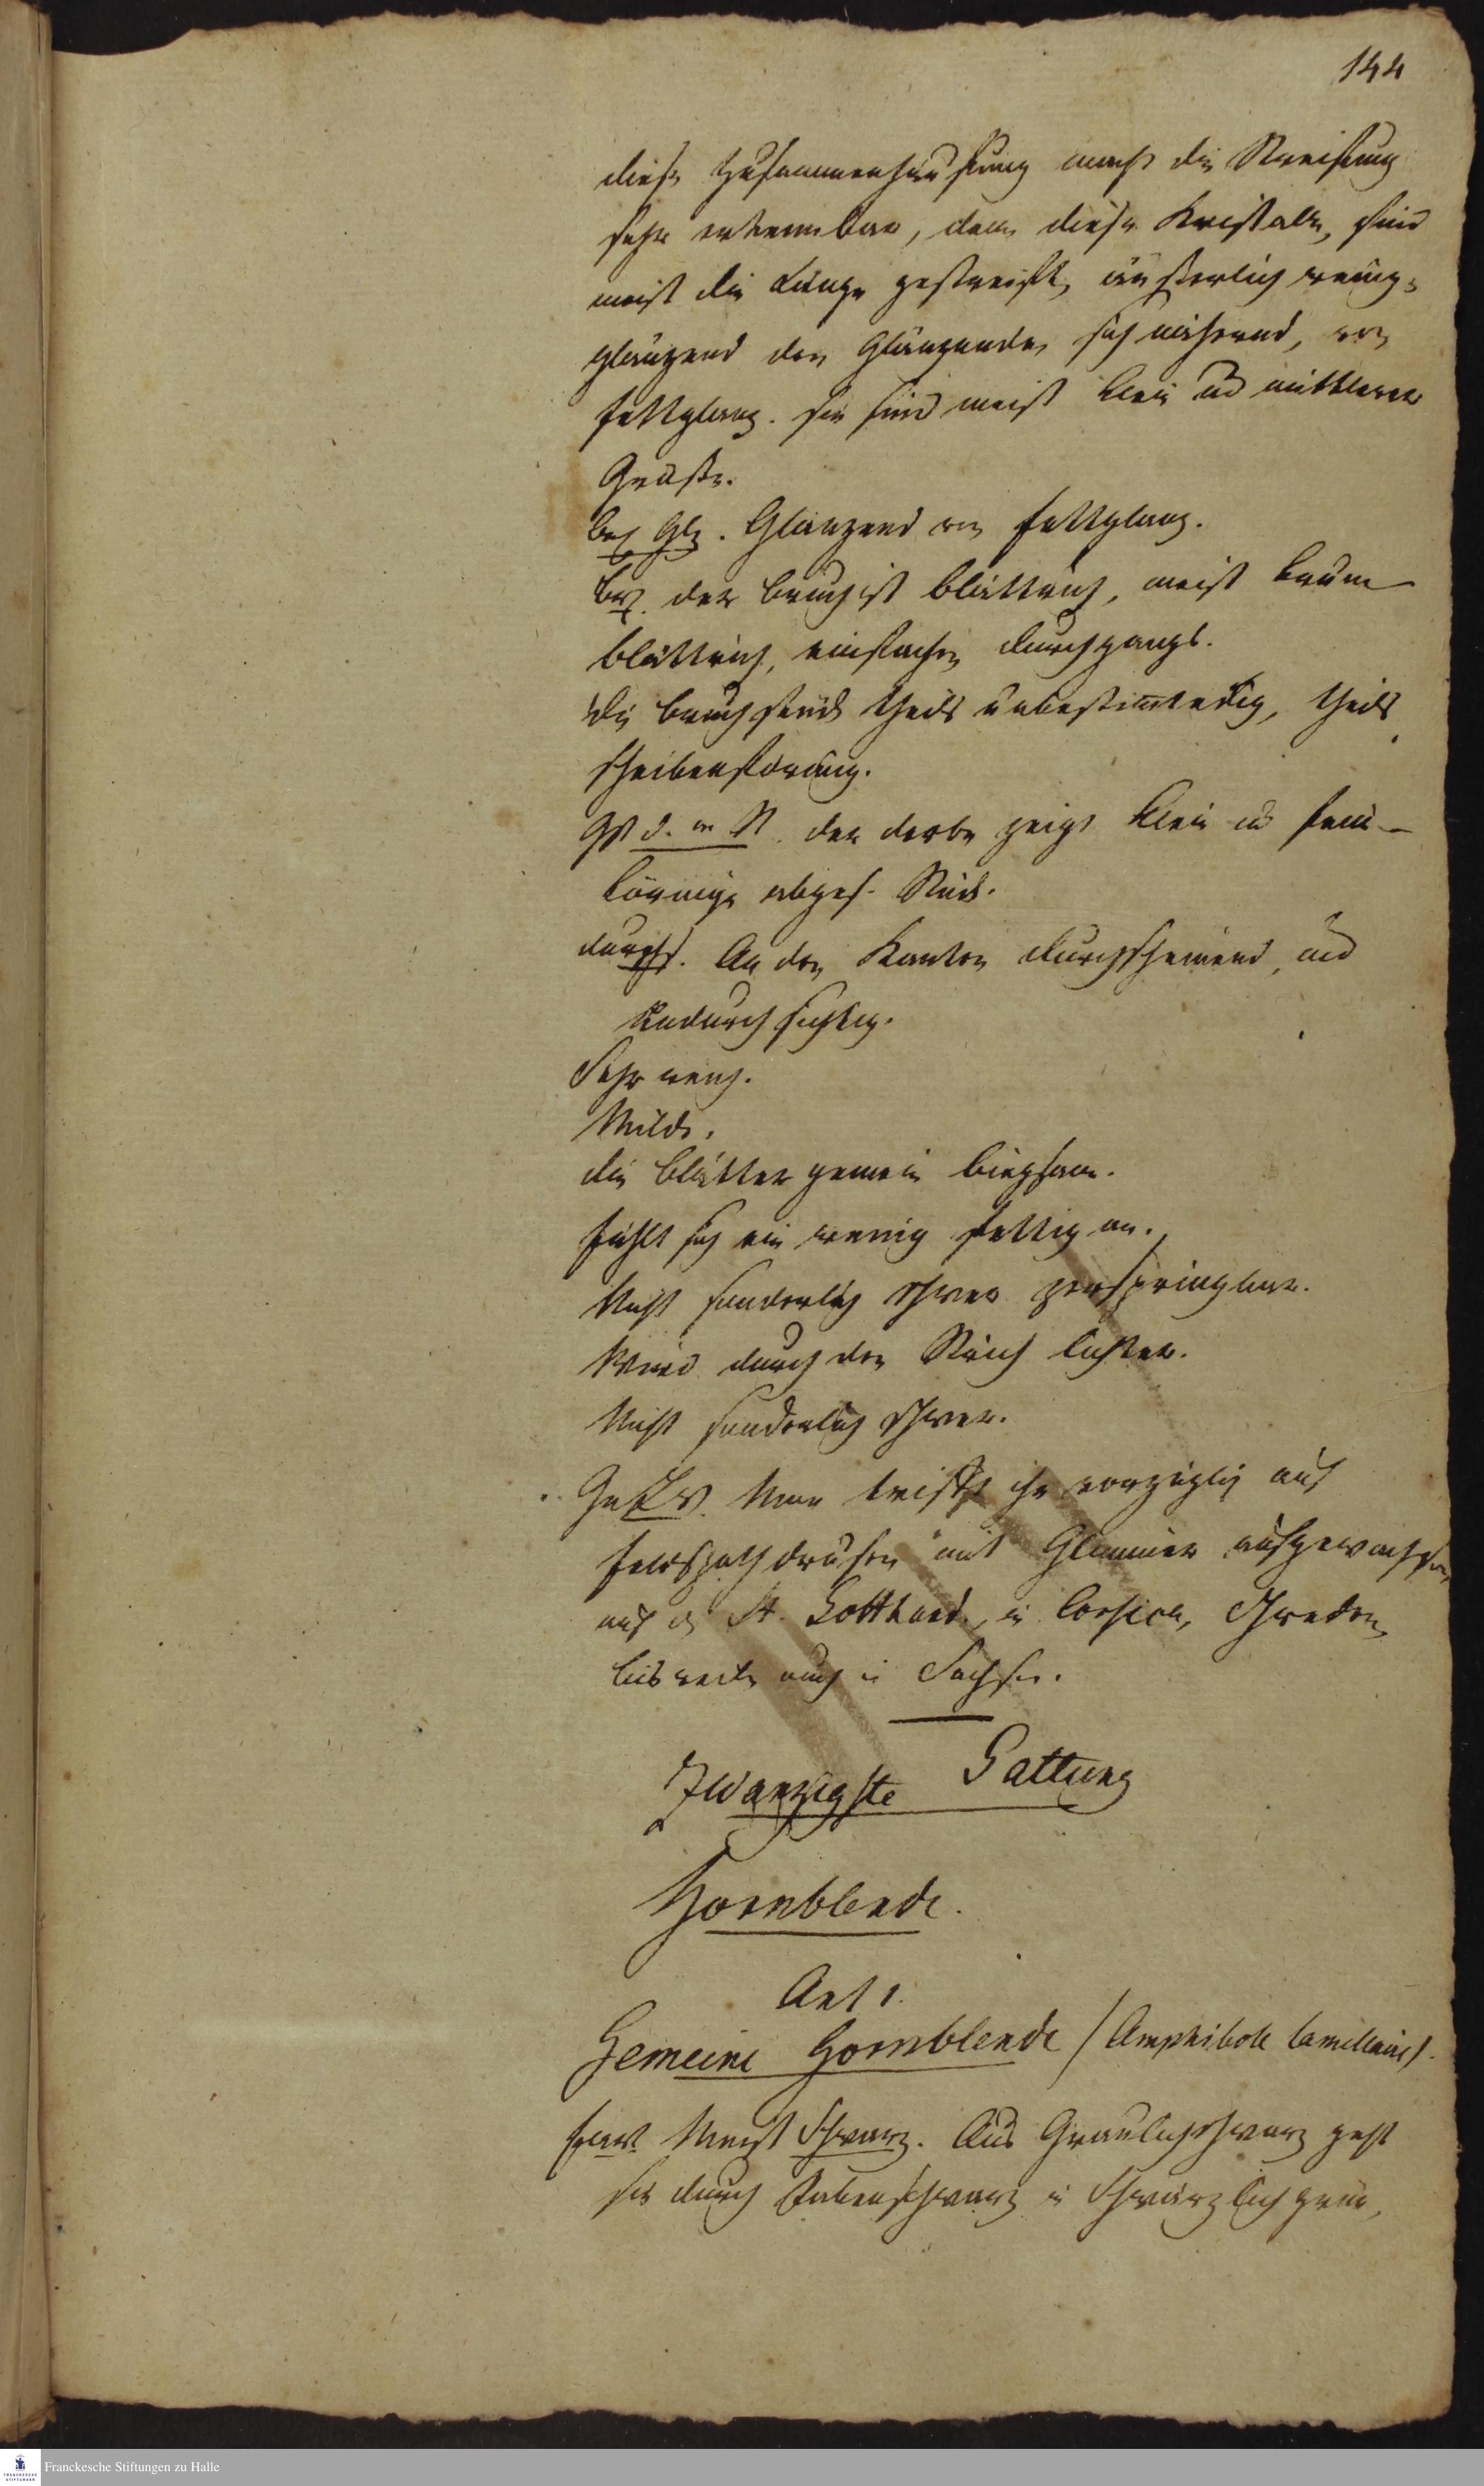 144
diese Zusammenhäufung macht die Streifung
sehr erkennbar, denn diese Kristalle, sind
meist die Länge gestreift, äußerlich wenig-
glänzend den Glänzenden sich nähernd, von
fettglanz. sie sind meist klein und mittlerer
Größe.
Br Glz. Glänzend von fettglanz.
Br. der bruch ist blättrich, meist krum
blättrich, einfachen durchgangs.
die bruchstück theils unbestimmteckig, theils
scheibenförmig.
Gst d. a St. der derbe zeigt klein und fein-
körnige abges. Stück.
durchs. An den Kanten durchscheinend, und
Undurchsichtig.
Sehr weich.
Milde.
die blätter gemein biegsam.
fühlt sich ein wenig fettig an.
Nicht sonderlich schwer zerspringbar.
Wird durch den Strich lichter.
Nicht sonderlich schwer.
Man trifft ihn vorzüglich auf
feldspathdrusen mit Glimmer aufgewachsen,
auf d St. Gotthard, in Corsica, Schweden,
bisweilen auch in Sachsen.
Zwanzigste Gattung
Hornblende.
Art 1.
Gemeine Hornblende /Amphibole lamellaire/.
farb. Meist Schwarz. Aus Graulichschwarz geht
sie durch Rabenschwarz in Schwärzlichgrün,
Franckesche Stiftungen zu Halle